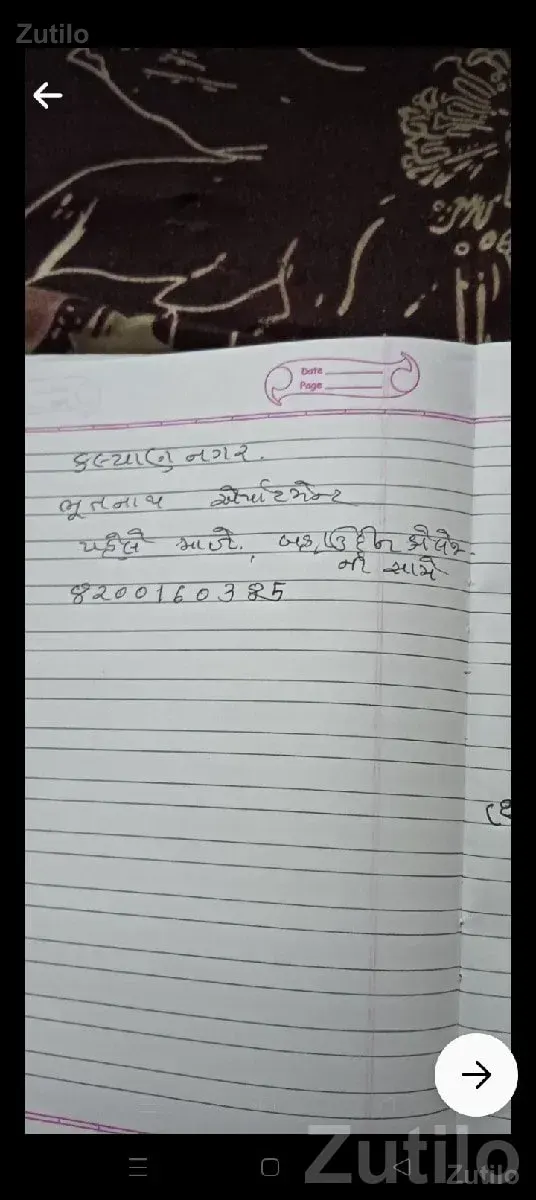 Zutilo
Date
Page
કલ્યાણ નગર.
ભૂતનાથ એપાર્ટમેન્ટ
પહેલે માળે, બહાઉદ્દીન કોલેજ.
ની સામે
8200160385
Zutilo
Zutilo